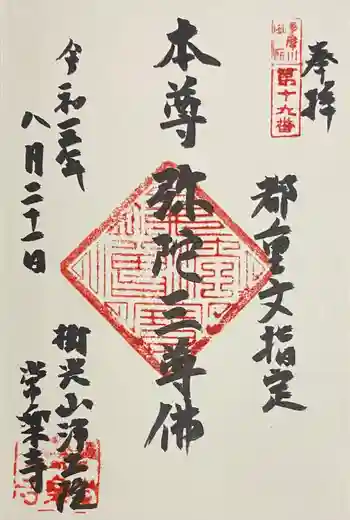 奉拝
多摩川
第十九番
都重文指定
本尊 弥陀三尊佛
令和三年
八月二十一日
樹光山浄土院
常楽寺